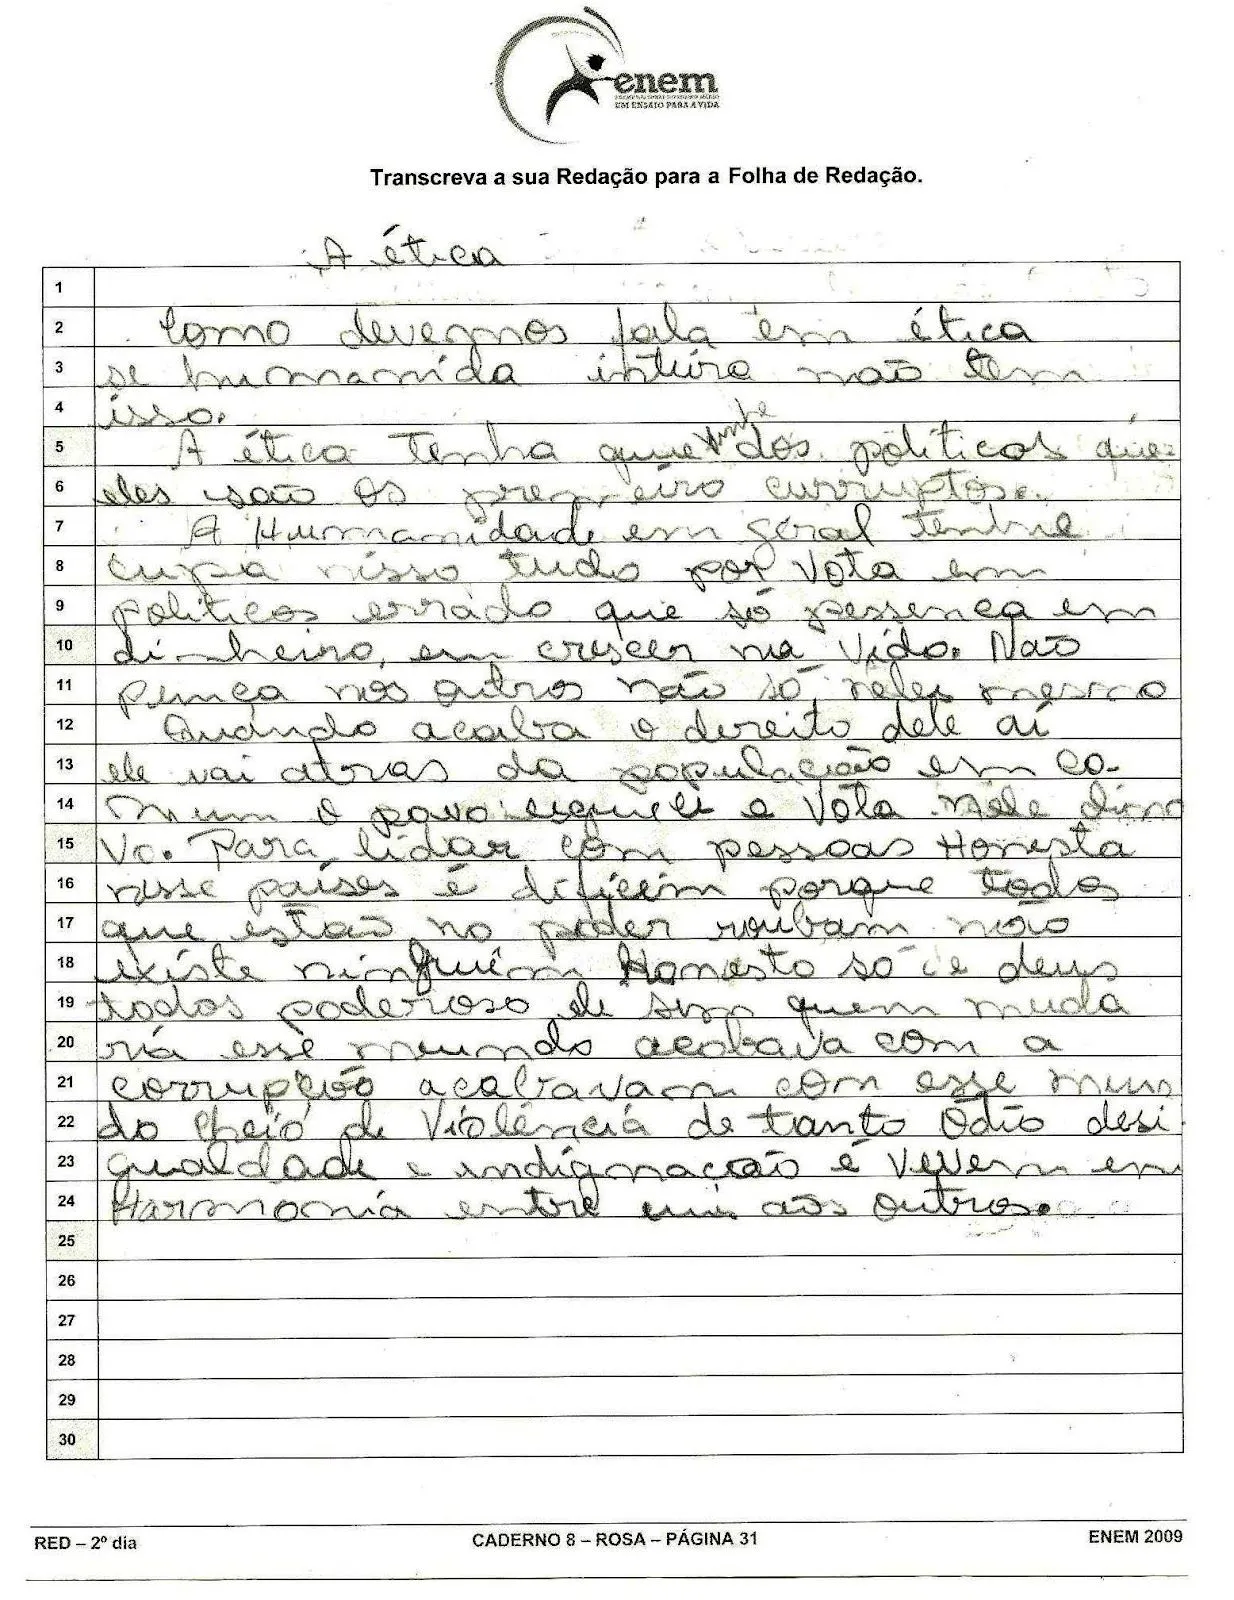 enem
UM ENSAIO PARA A VIDA
Transcreva a sua Redação para a Folha de Redação.
A ética
1
2 Como devemos fala em ética
3 se humanida inteira não tem
4 isso.
5 A ética tenha que vinhe dos políticos que
6 eles são os premeiro curruptos.
7 A Humanidade em geral tenhne
8 cupa nisso tudo por vota em
9 politicos errado que só pessença em
10 dinheiro, em crescer na vida. Não
11 pença nos outros não só neles mesmo
12 Quando acaba o dereito dele aí
13 ele vai atras da população em co-
14 mum o povo esquece e vota nele dino
15 vo. Para lidar com pessoas Honesta
16 nesse países é dificiem porque todos
17 que estão no poder roubam não
18 existe ninguém Honesto só de deus
19 todos poderoso ele sim quem muda
20 ria esse meundo acabava com a
21 corrupção acabavam com esse mun
22 do cheio de violência de tanto Ódio desi
23 gualdade e indignação é vevem em
24 Harmonia entre uns aos outros.
25
26
27
28
29
30
RED – 2º dia
CADERNO 8 – ROSA – PÁGINA 31
ENEM 2009